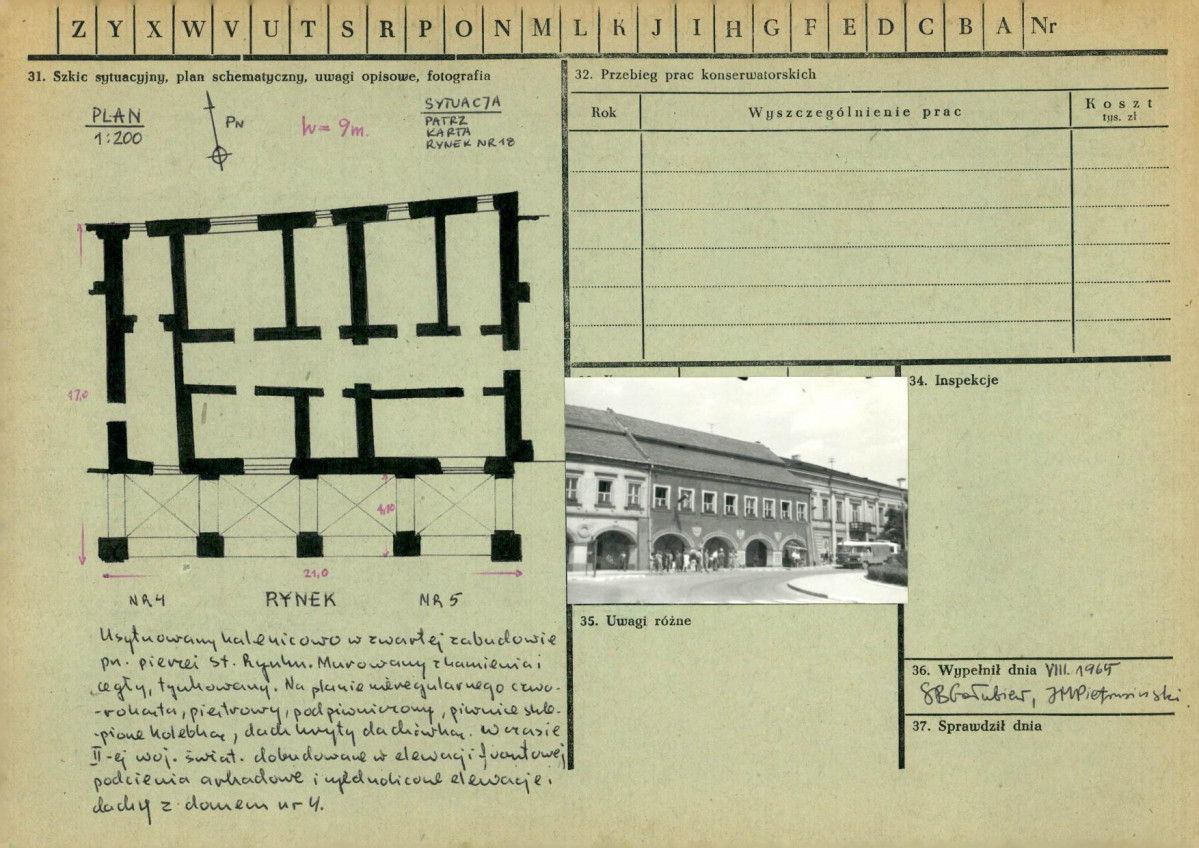 Z Y X W V U T S R P O N M L K J I H G F E D C B A Nr
31. Szkic sytuacyjny, plan schematyczny, uwagi opisowe, fotografia
PLAN
1:200
PN
h = 9m.
SYTUACJA
PATRZ
KARTA
RYNEK NR 18
17,0
4,10
21,0
NR 4 RYNEK NR 5
Usytuowany kalenicowo w zwartej zabudowie
pn. pierzei St. Rynku. Murowany z kamienia i
cegły, tynkowany. Na planie nieregularnego czwo-
-roboku, piętrowy, podpiwniczony, piwnice skle-
-pione kolebką, dach kryty dachówką. W czasie
II-ej woj. świat. dobudowane w elewacji frontowej
podcienia arkadowe i ujednolicone elewacje i
dachy z domem nr 4.
32. Przebieg prac konserwatorskich
Rok Wyszczególnienie prac Koszt
tys. zł
34. Inspekcje
35. Uwagi różne
36. Wypełnił dnia VIII. 1965
37. Sprawdził dnia